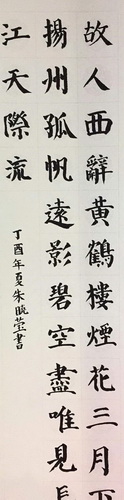 故人西辭黃鶴樓煙花三月下
揚州孤帆遠影碧空盡唯見長
江天際流
丁酉年夏朱曉瑩書